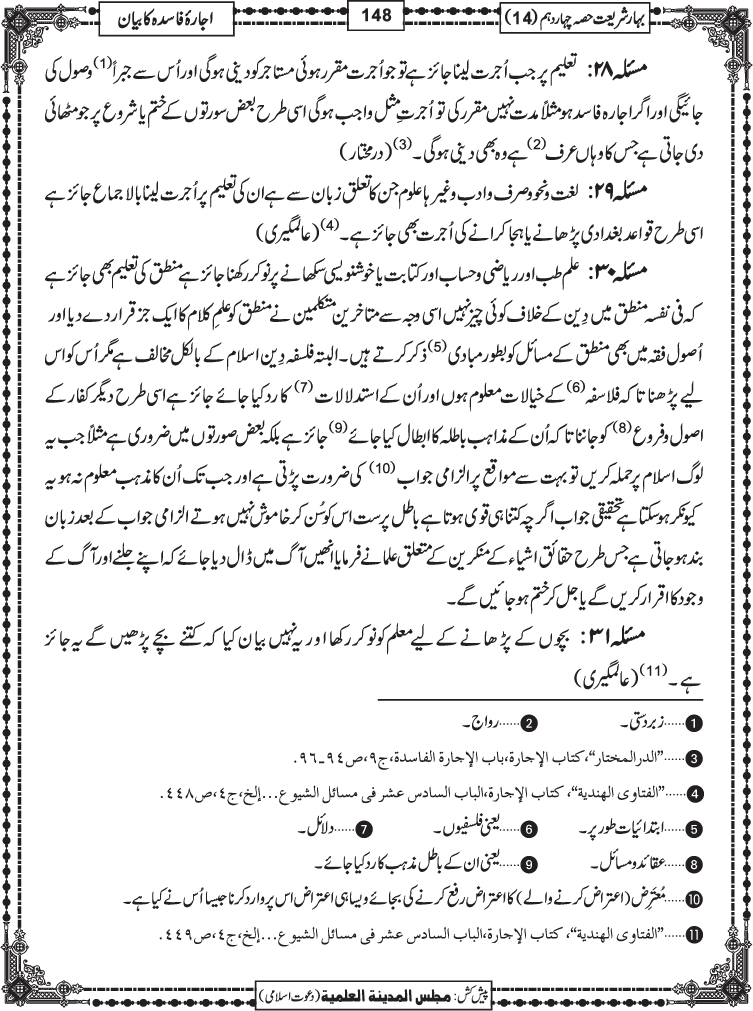 بہارِ شریعت حصہ چہاردہم (14)
148
اجارۂ فاسدہ کا بیان
مسئلہ ۲۸: تعلیم پر جب اُجرت لینا جائز ہے تو جو اُجرت مقرر ہوئی مستاجر کو دینی ہوگی اور اُس سے جبراً(1) وصول کی
جائیگی اور اگر اجارہ فاسد ہو مثلاً مدت نہیں مقرر کی تو اُجرتِ مثل واجب ہوگی اسی طرح بعض سورتوں کے ختم یا شروع پر جو مٹھائی
دی جاتی ہے جس کا وہاں عرف(2) ہے وہ بھی دینی ہوگی۔(3) (درمختار)
مسئلہ ۲۹: لغت و نحو و صرف و ادب وغیرہا علوم جن کا تعلق زبان سے ہے ان کی تعلیم پر اُجرت لینا بالاجماع جائز ہے
اسی طرح قواعد بغدادی پڑھانے یا ہجا کرانے کی اُجرت بھی جائز ہے۔(4) (عالمگیری)
مسئلہ ۳۰: علم طب اور ریاضی و حساب اور کتابت یا خوشنویسی سکھانے پر نوکر رکھنا جائز ہے منطق کی تعلیم بھی جائز ہے
کہ فی نفسہ منطق میں دِین کے خلاف کوئی چیز نہیں اسی وجہ سے متاخرین متکلمین نے منطق کو علمِ کلام کا ایک جز قرار دے دیا اور
اُصول فقہ میں بھی منطق کے مسائل کو بطور مبادی(5) ذکر کرتے ہیں۔ البتہ فلسفہ دِین اسلام کے بالکل مخالف ہے مگر اُس کو اس
لیے پڑھنا تاکہ فلاسفہ(6) کے خیالات معلوم ہوں اور اُن کے استدلالات(7) کا رد کیا جائے جائز ہے اسی طرح دیگر کفار کے
اصول و فروع(8) کو جاننا تاکہ اُن کے مذاہب باطلہ کا ابطال کیا جائے(9) جائز ہے بلکہ بعض صورتوں میں ضروری ہے مثلاً جب یہ
لوگ اسلام پر حملہ کریں تو بہت سے مواقع پر الزامی جواب(10) کی ضرورت پڑتی ہے اور جب تک اُن کا مذہب معلوم نہ ہو یہ
کیونکر ہوسکتا ہے تحقیقی جواب اگرچہ کتنا ہی قوی ہوتا ہے باطل پرست اس کو سُن کر خاموش نہیں ہوتے الزامی جواب کے بعد زبان
بند ہو جاتی ہے جس طرح حقائق اشیاء کے منکرین کے متعلق علما نے فرمایا انھیں آگ میں ڈال دیا جائے کہ اپنے جلنے اور آگ کے
وجود کا اقرار کریں گے یا جل کر ختم ہو جائیں گے۔
مسئلہ ۳۱: بچوں کے پڑھانے کے لیے معلم کو نوکر رکھا اور یہ نہیں بیان کیا کہ کتنے بچے پڑھیں گے یہ جائز
ہے۔(11) (عالمگیری)
1......زبردستی۔ 2......رواج۔
3......"الدرالمختار"، کتاب الإجارة،باب الإجارة الفاسدة،ج۹،ص۹۴-۹۶.
4......"الفتاوی الهندية"، کتاب الإجارة،الباب السادس عشر فی مسائل الشیوع...إلخ،ج٤،ص٤٤٨.
5......ابتدائیات طور پر۔ 6......یعنی فلسفیوں۔ 7......دلائل۔
8......عقائد و مسائل۔ 9......یعنی ان کے باطل مذہب کا رد کیا جائے۔
10......مُعتَرِض (اعتراض کرنے والے) کا اعتراض رفع کرنے کی بجائے ویسا ہی اعتراض اس پر وارد کرنا جیسا اُس نے کیا ہے۔
11......"الفتاوی الهندية"، کتاب الإجارة،الباب السادس عشر فی مسائل الشیوع...إلخ،ج٤،ص٤٤٩.
پیش کش: مجلس المدینۃ العلمیۃ (دعوت اسلامی)